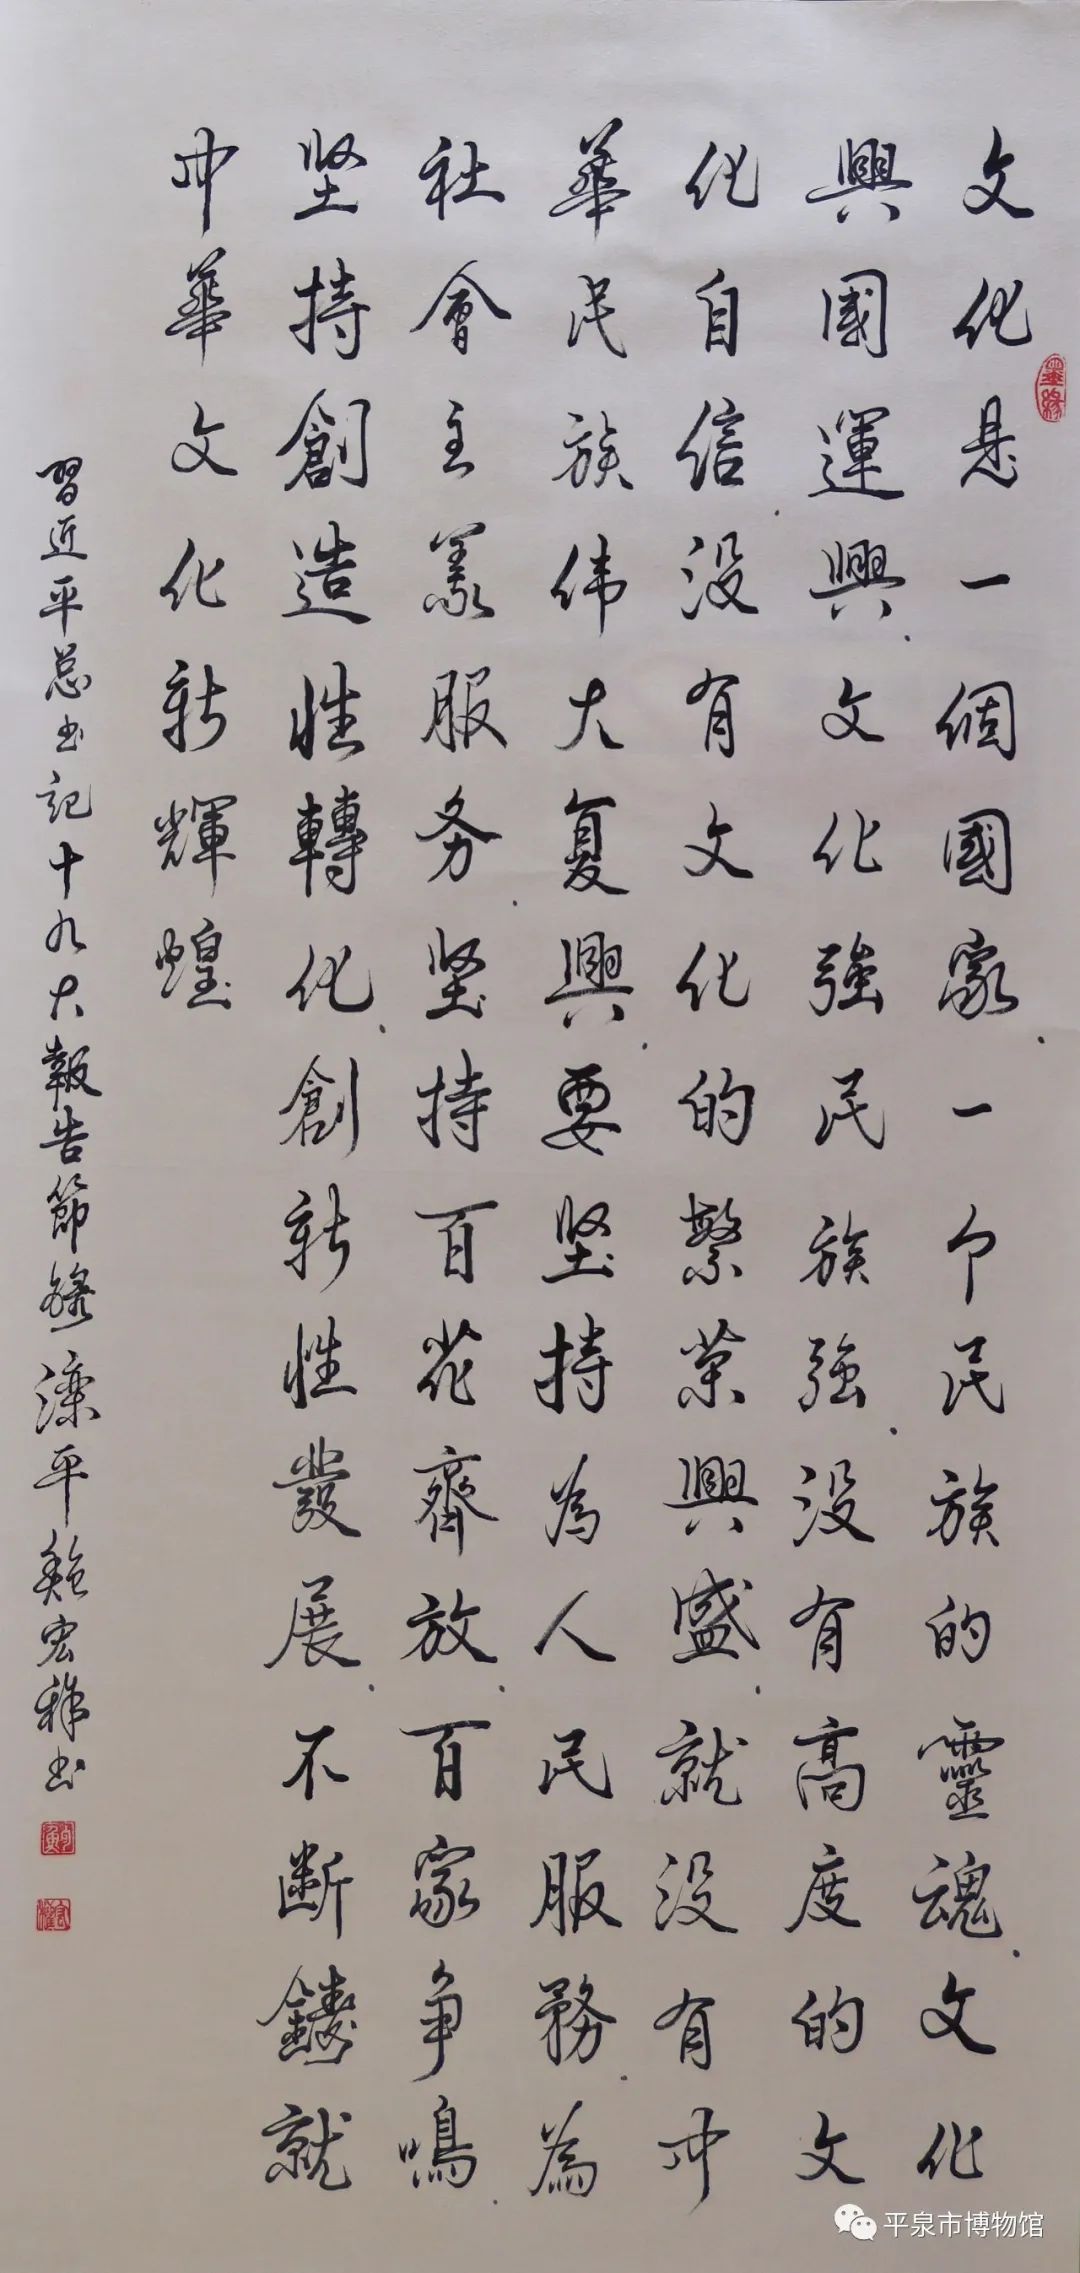 文化是一個國家一个民族的靈魂文化
興國運興文化強民族強没有高度的文
化自信没有文化的繁荣興盛就没有中
華民族伟大复興要坚持為人民服務為
社會主義服务坚持百花齊放百家争鳴
坚持創造性轉化創新性發展不断鑄就
中華文化新輝煌
習近平总书記十九大報告節録滦平鮑宏禄书
墨缘
平泉市博物馆